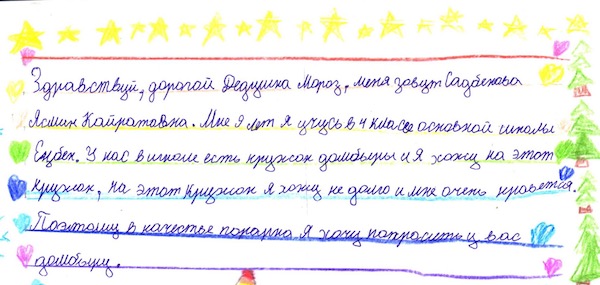 Здравствуй, дорогой Дедушка Мороз, меня зовут Садбекова
Ясмин Кайратовна. Мне 9 лет я учусь в 4 классе основной школы
Еңбек. У нас в школе есть кружок домбыры и я хожу на этот
кружок, на этот кружок я хожу не долго и мне очень нравется.
Поэтому в качестье поparка я хочу попросить у вас
домбыру.